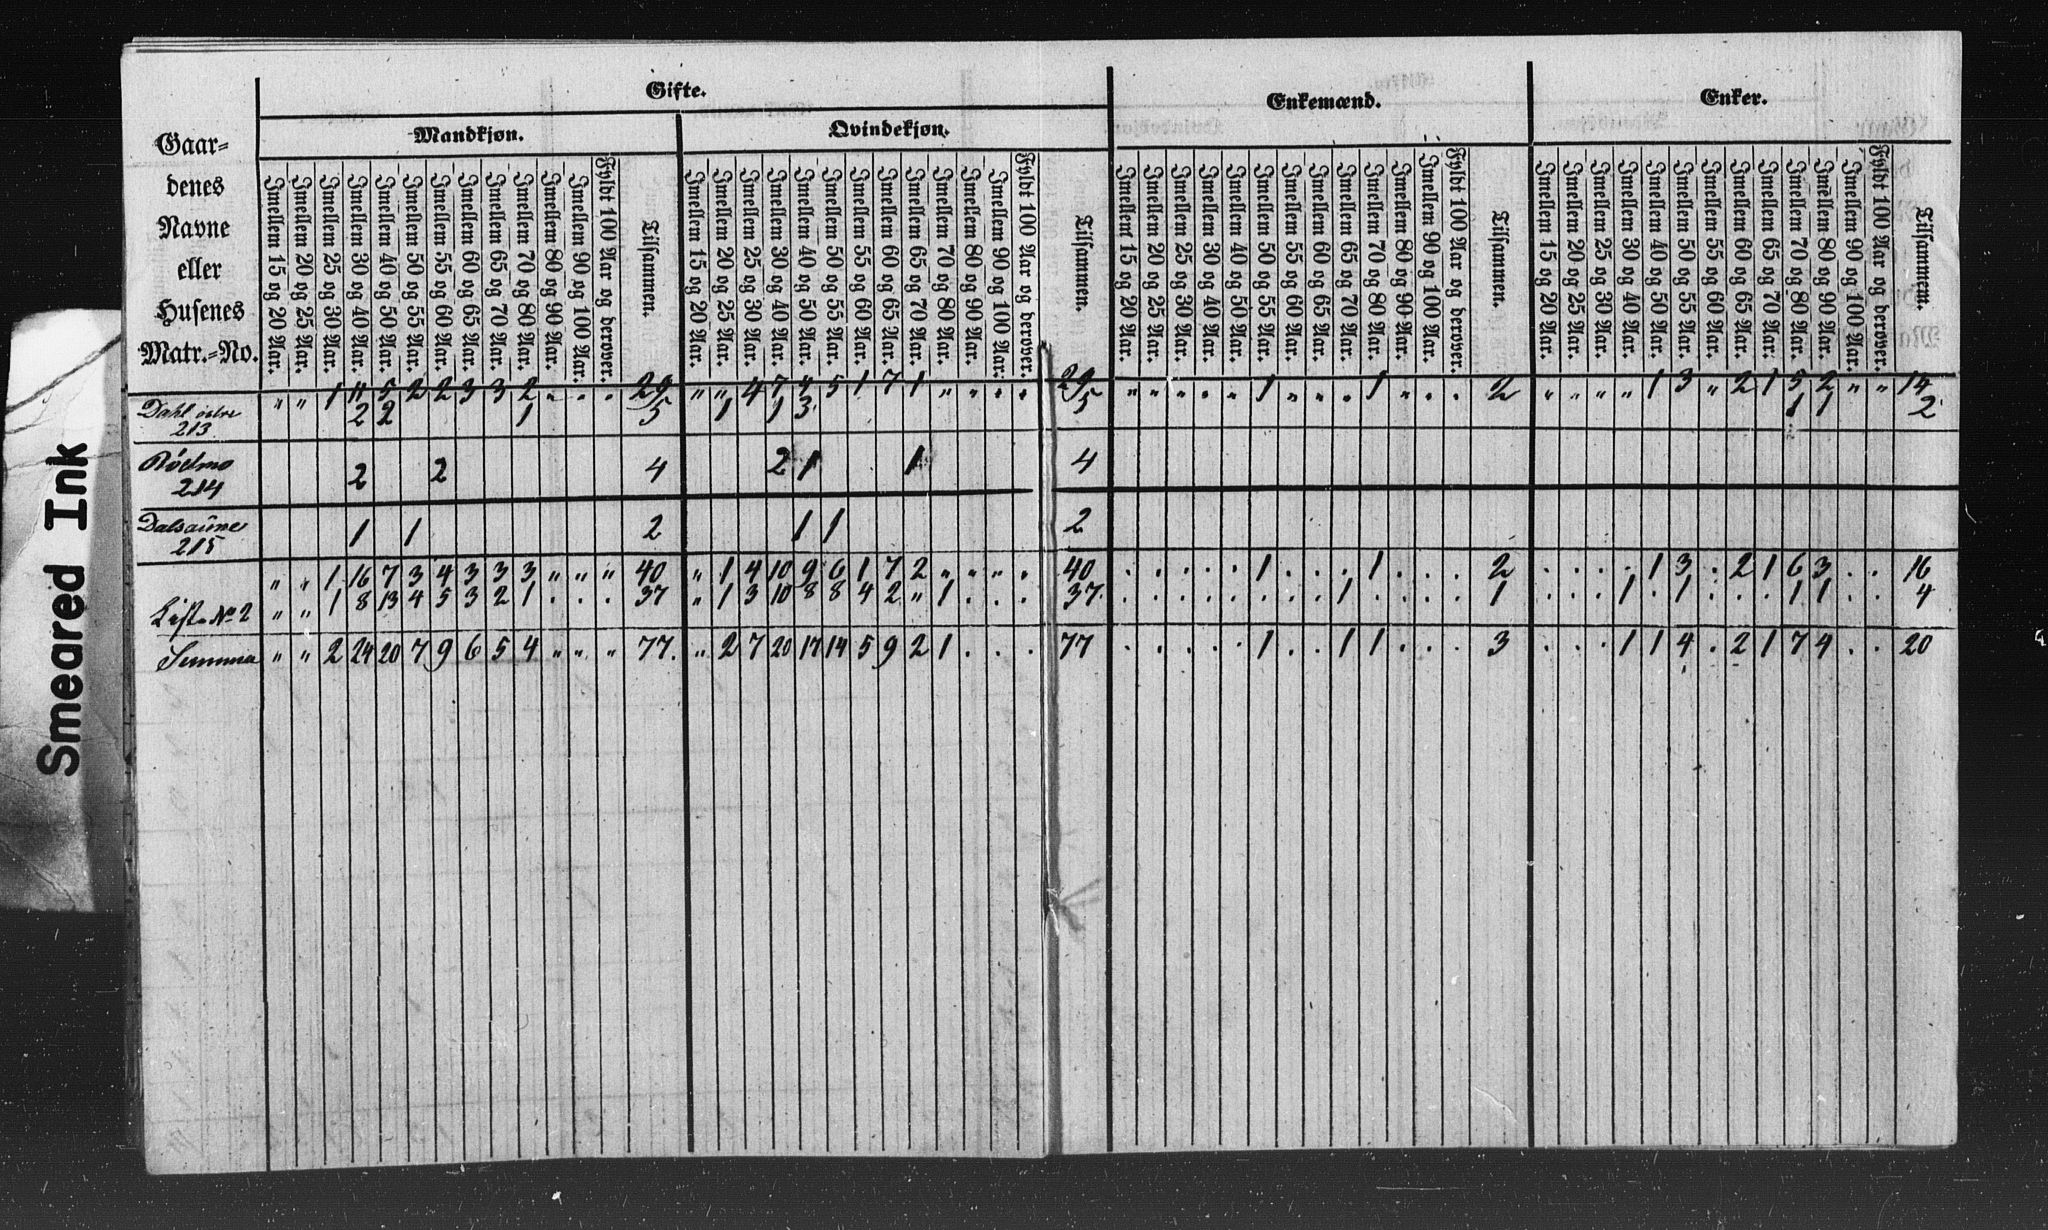 Gifte.
Enkemænd.
Enker.
Mandkjøn.
Qvindekjøn.
Gaar=
denes
Navne
eller
Husenes
Matr.=No.
Imellem 15 og 20 Aar. Imellem 20 og 25 Aar. Imellem 25 og 30 Aar. Imellem 30 og 40 Aar. Imellem 40 og 50 Aar. Imellem 50 og 55 Aar. Imellem 55 og 60 Aar. Imellem 60 og 65 Aar. Imellem 65 og 70 Aar. Imellem 70 og 80 Aar. Imellem 80 og 90 Aar. Imellem 90 og 100 Aar. Fyldt 100 Aar og derover. Tilsammen.
Imellem 15 og 20 Aar. Imellem 20 og 25 Aar. Imellem 25 og 30 Aar. Imellem 30 og 40 Aar. Imellem 40 og 50 Aar. Imellem 50 og 55 Aar. Imellem 55 og 60 Aar. Imellem 60 og 65 Aar. Imellem 65 og 70 Aar. Imellem 70 og 80 Aar. Imellem 80 og 90 Aar. Imellem 90 og 100 Aar. Fyldt 100 Aar og derover. Tilsammen.
Imellem 15 og 20 Aar. Imellem 20 og 25 Aar. Imellem 25 og 30 Aar. Imellem 30 og 40 Aar. Imellem 40 og 50 Aar. Imellem 50 og 55 Aar. Imellem 55 og 60 Aar. Imellem 60 og 65 Aar. Imellem 65 og 70 Aar. Imellem 70 og 80 Aar. Imellem 80 og 90 Aar. Imellem 90 og 100 Aar. Fyldt 100 Aar og derover. Tilsammen.
Imellem 15 og 20 Aar. Imellem 20 og 25 Aar. Imellem 25 og 30 Aar. Imellem 30 og 40 Aar. Imellem 40 og 50 Aar. Imellem 50 og 55 Aar. Imellem 55 og 60 Aar. Imellem 60 og 65 Aar. Imellem 65 og 70 Aar. Imellem 70 og 80 Aar. Imellem 80 og 90 Aar. Imellem 90 og 100 Aar. Fyldt 100 Aar og derover. Tilsammem.
" " 1 11 5 2 2 3 3 2 . . . 29 " " 4 7 4 5 1 7 1 " " . . 29 " " . . . 1 " . . 1 . . . 2 . " " " 1 3 " 2 1 5 2 " " 14
Dahl østre 2 2 1 5 1 1 3 5 1 1 2
213
Rødmo 2 2 4 2 1 1 4
214
Dalsaune 1 1 2 1 1 2
215
" " 1 16 7 3 4 3 3 3 " " " 40 " 1 4 10 9 6 1 7 2 " " " . 40 . . . . . 1 . . . 1 . . . 2 . . . . 1 3 . 2 1 6 3 . . 16
Liste No 2 " " 1 8 13 4 5 3 2 1 . . . 37 " 1 3 10 8 8 4 2 " 1 . . . 37. . . . . . . . . 1 . . . . 1 . . . 1 . 1 . . . 1 1 . . 4
Summa " " 2 24 20 7 9 6 5 4 " " " 77. " 2 7 20 17 14 5 9 2 1 . . . 77 . . . . . 1 . . 1 1 . . . 3 . . . 1 1 4 . 2 1 7 4 . . 20
Smeared Ink